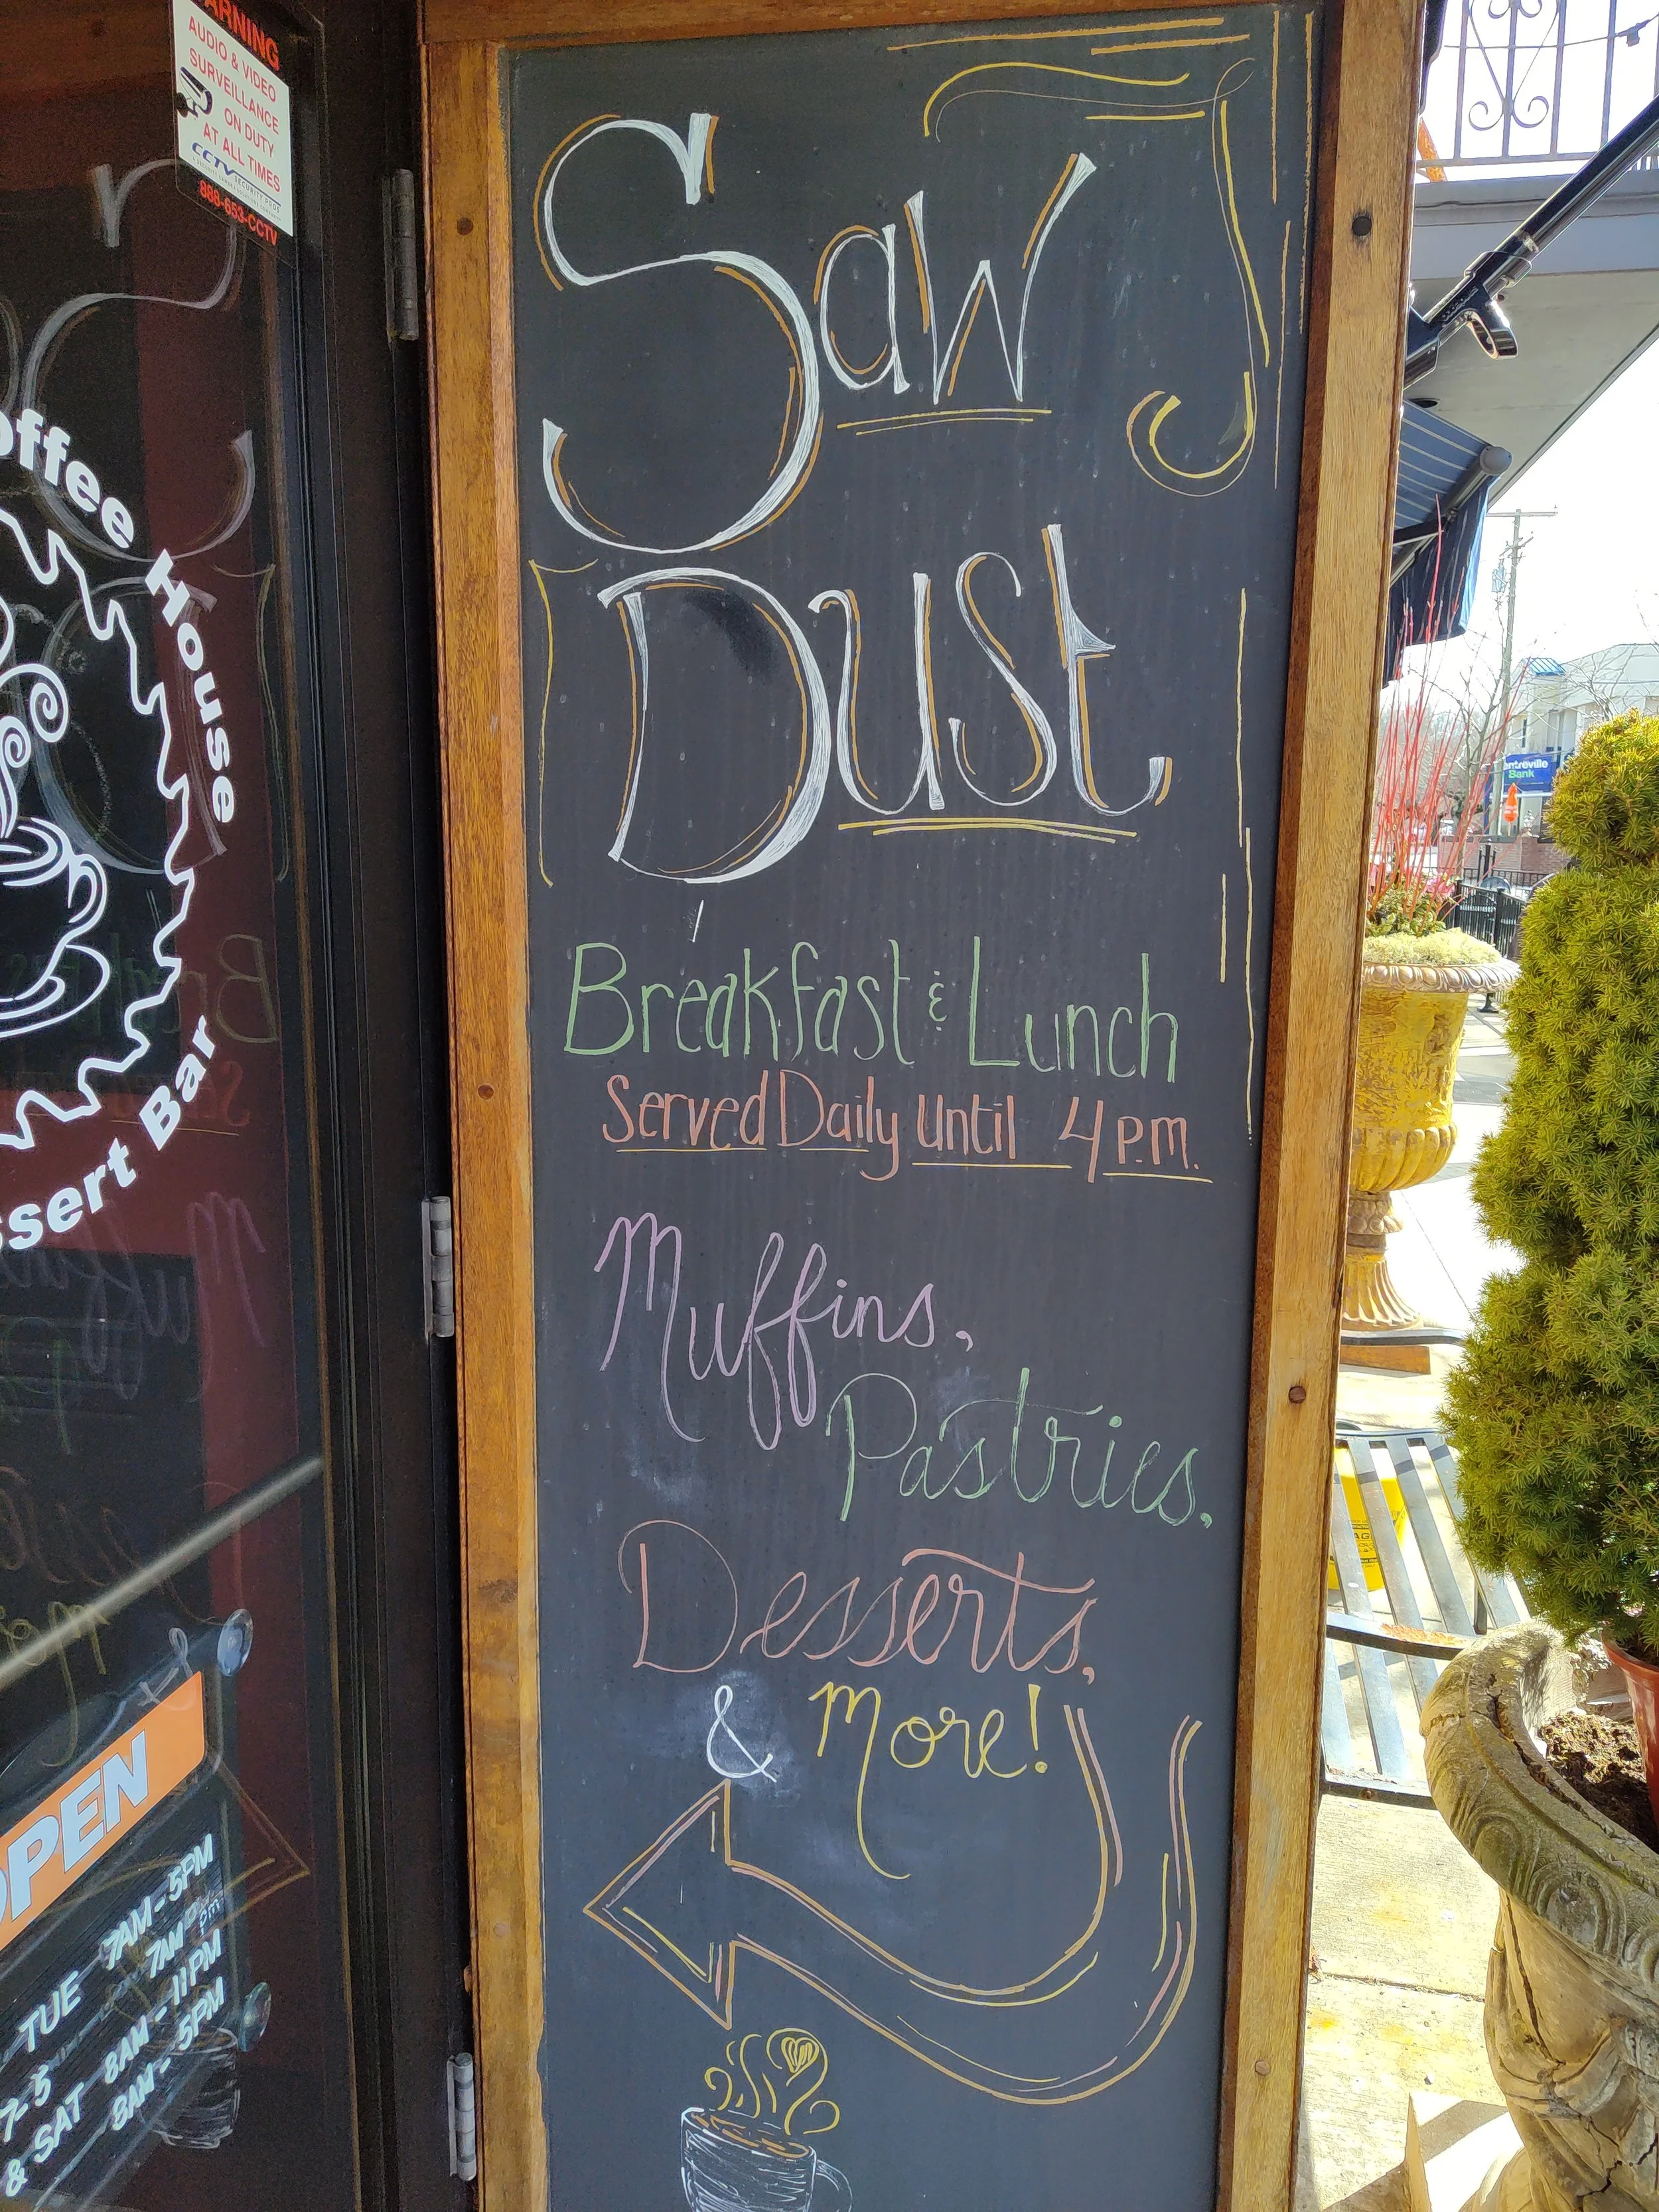 WARNING
AUDIO & VIDEO
SURVEILLANCE
ON DUTY
AT ALL TIMES
CCTV SECURITY PROS
888-653-CCTV
House
Bar
TUE 7AM - 5PM
7AM
& SAT 8AM - 11PM
8AM - 5PM
Saw
Dust
Breakfast & Lunch
Served Daily Until 4 P.M.
Muffins,
Pastries,
Desserts,
& More!
Bank